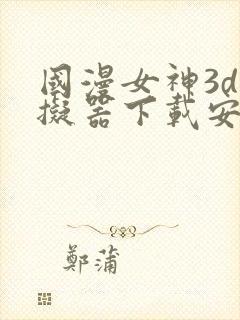 國漫女神3d
擬器下載安
鄭蒲